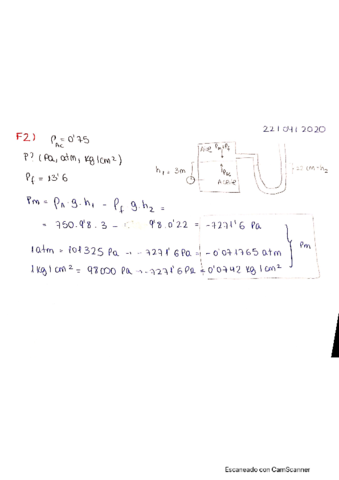 22/04/2020
F2) ρAC = 0'75
P? (Pa, atm, kg/cm²)
ρf = 13'6
Aire
h1 = 3m
ρAC
Aceite
Pm = ρA · g · h1 - ρf g h2 =
= 750 · 9'8 · 3 - 9'8 · 0'22 = -7271'6 Pa
1 atm = 101325 Pa → -7271'6 Pa = -0'071765 atm
Pm
1 kg/cm² = 98000 Pa → -7271'6 Pa = -0'0742 kg/cm²
Escaneado con CamScanner